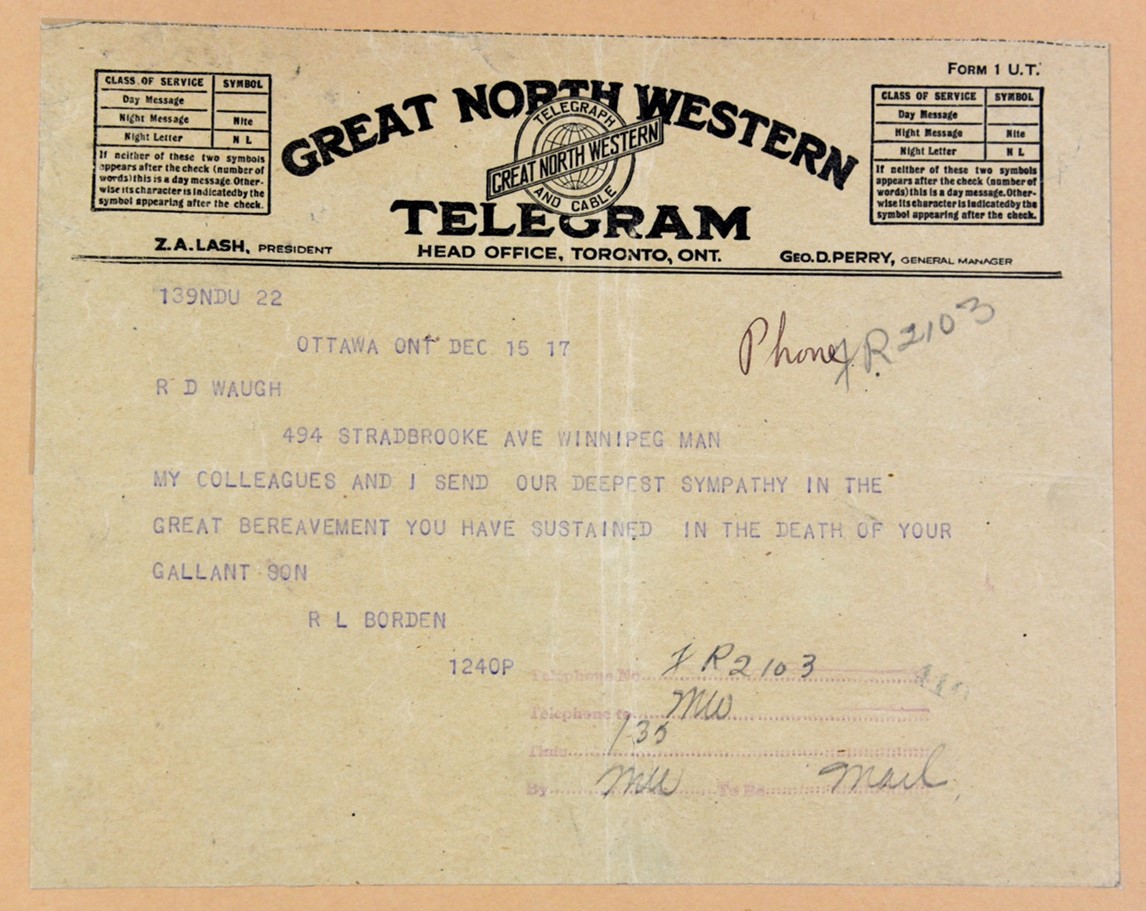 FORM 1 U.T.
CLASS OF SERVICE SYMBOL
Day Message
Night Message Nite
Night Letter N L
If neither of these two symbols
appears after the check (number of
words) this is a day message. Other-
wise its character is indicated by the
symbol appearing after the check.
GREAT NORTH WESTERN
TELEGRAPH
GREAT NORTH WESTERN
AND CABLE
TELEGRAM
CLASS OF SERVICE SYMBOL
Day Message
Night Message Nite
Night Letter N L
If neither of these two symbols
appears after the check (number of
words) this is a day message. Other-
wise its character is indicated by the
symbol appearing after the check.
Z.A. LASH, PRESIDENT
HEAD OFFICE, TORONTO, ONT.
GEO. D. PERRY, GENERAL MANAGER
139NDU 22
OTTAWA ONT DEC 15 17
Phone FR2103
R D WAUGH
494 STRADBROOKE AVE WINNIPEG MAN
MY COLLEAGUES AND I SEND OUR DEEPEST SYMPATHY IN THE
GREAT BEREAVEMENT YOU HAVE SUSTAINED IN THE DEATH OF YOUR
GALLANT SON
R L BORDEN
1240P
Telephone No. FR2103
Telephone to
135
By To Be Mail